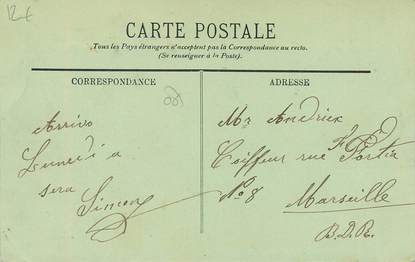 12 €
CARTE POSTALE
Tous les Pays étrangers n'acceptent pas la Correspondance au recto.
(Se renseigner à la Poste).
CORRESPONDANCE
Arrivo
Lunedi a
sera
Simon
ADRESSE
Mr Andrieu
Coiffeur rue Fortia
No 8
Marseille
B.D.R.